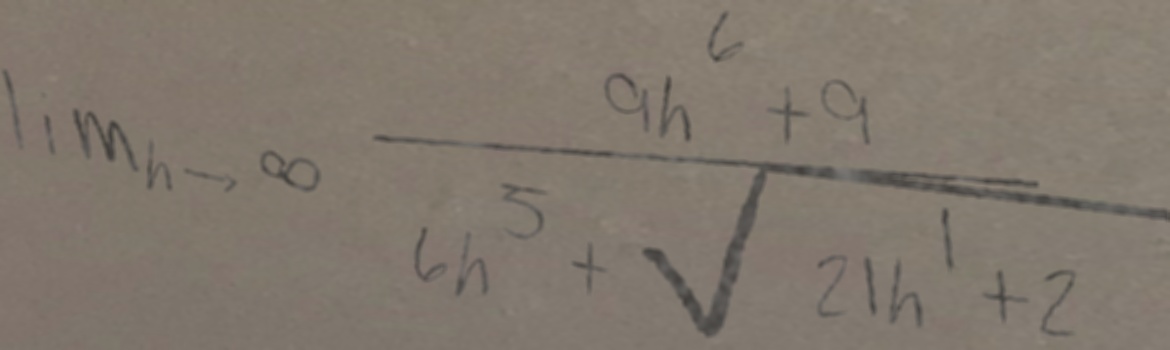 \lim_{h \to \infty} \frac{9h^6 + 9}{6h^5 + \sqrt{21h^1 + 2}}